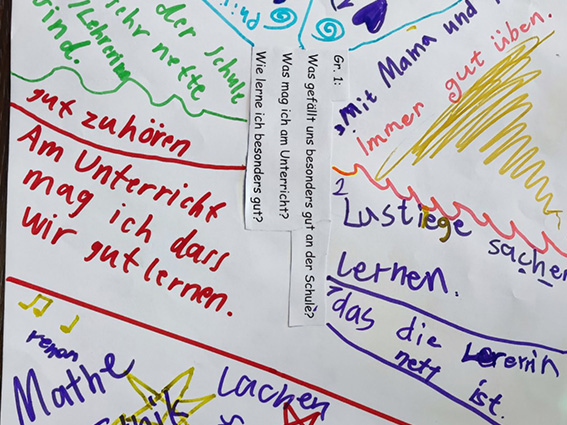 der Schule
sehr nette
Lehrerin
sind.
gut zuhören
Am Unterricht
mag ich dass
wir gut lernen.
Gr. 1:
Was gefällt uns besonders gut an der Schule?
Was mag ich am Unterricht?
Wie lerne ich besonders gut?
Mit Mama und
Immer gut üben.
Lustiege sachen
Lernen.
das die Lererin
nett ist.
Mathe
Lachen